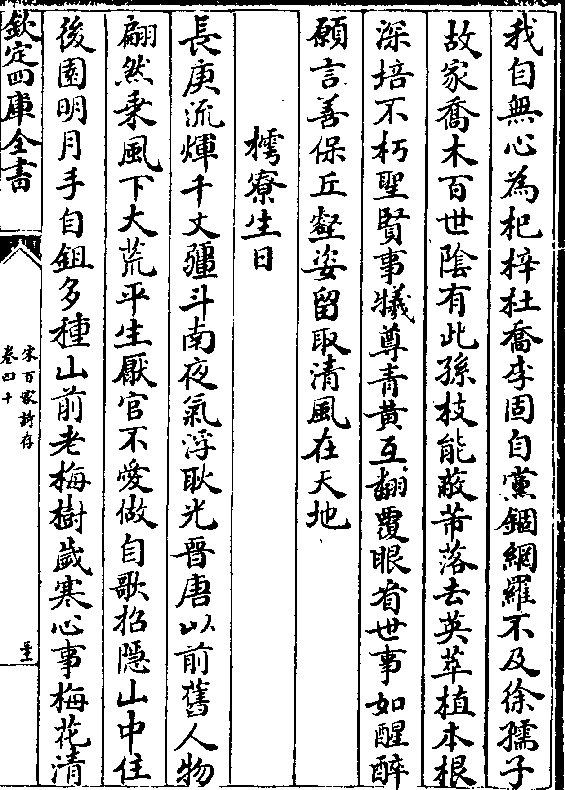 我自無心為杞梓杜喬李固自黨錮網羅不及徐孺子
故家喬木百世陰有此孫枝能蔽芾落去英華植本根
深培不朽聖賢事犧尊青黃互翻覆眼看世事如醒醉
願言善保丘壑姿留取清風在天地
樗寮生日
長庚流煇千丈彊斗南夜氣浮耿光晉唐以前舊人物
翩然乗風下大荒平生厭官不愛做自歌招隱山中住
後園明月手自鉏多種山前老梅樹歲寒心事梅花清
欽定四庫全書
宋百家詩存
卷四十